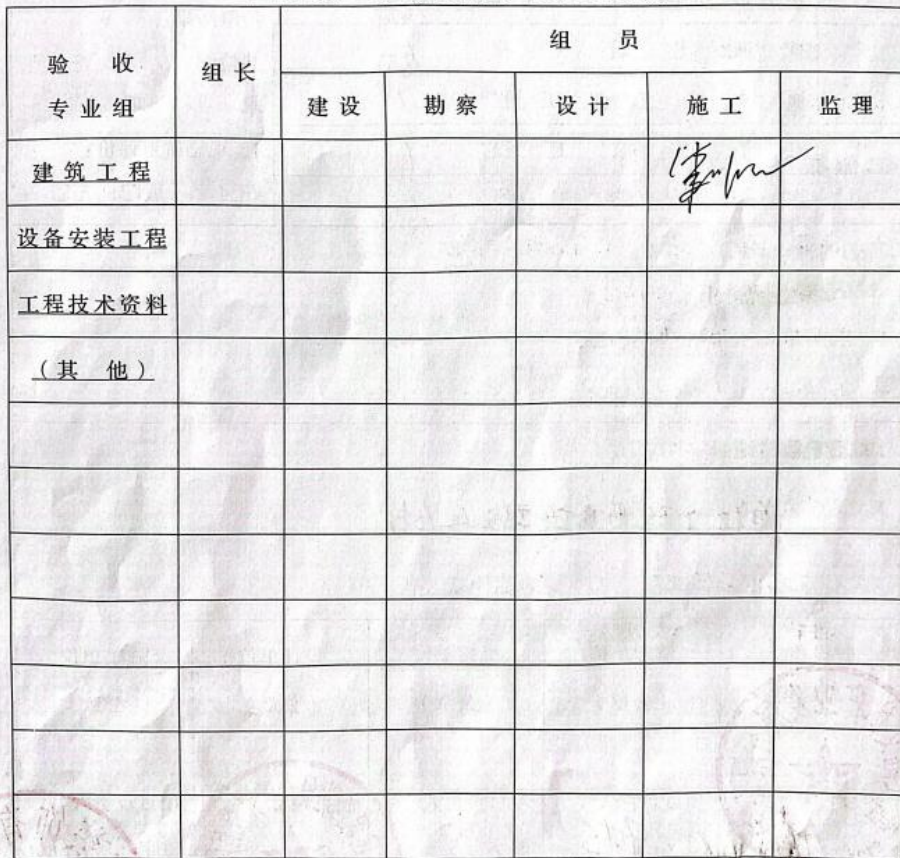 验 收
专业组
组长
组 员
建设
勘察
设计
施工
监理
建筑工程
设备安装工程
工程技术资料
（其 他）